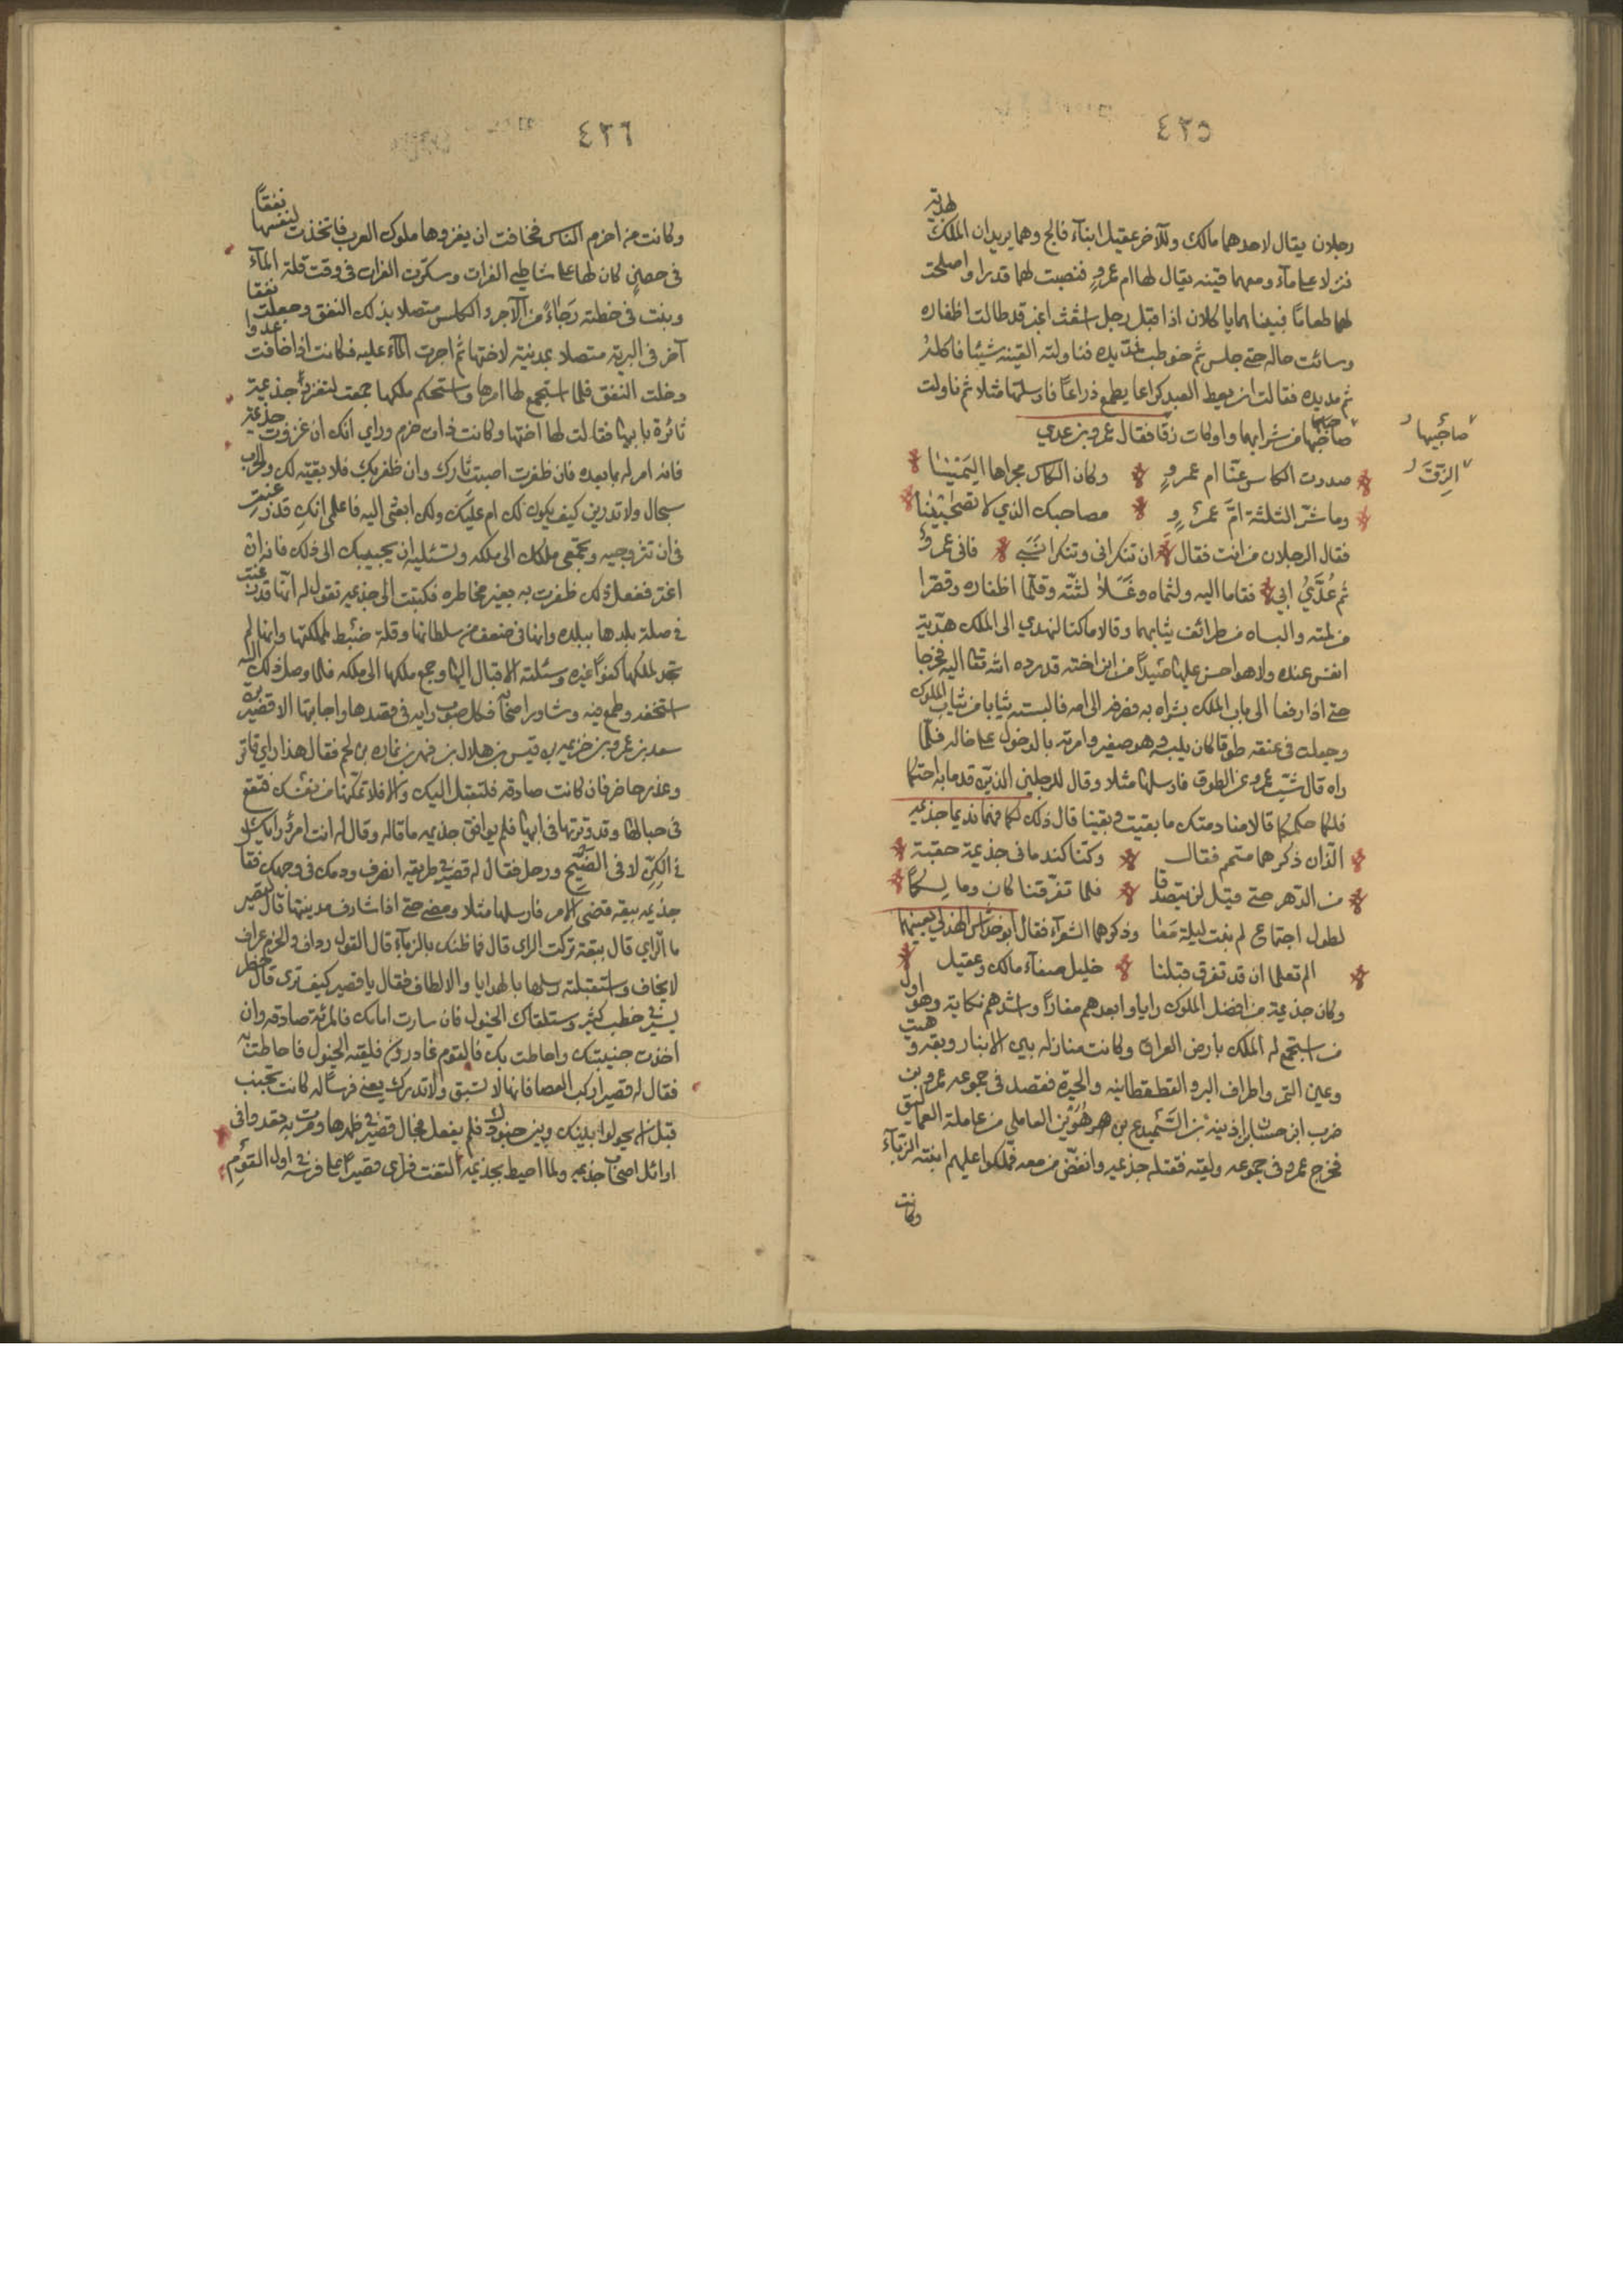 ٤٢٥
رجلان يقال لاحدهما مالك وللآخر عقيل ابناء فالج وهما يريدان الملك لهدية
نزلا على ماء ومعهما قينه يقال لها ام عمرو فنصبت لهما قدرا واصلحت
لهما طعاما فبينا هما ياكلان اذ اقبل رجل اشعث اغبر قد طالت اظفاره
وسائت حاله حتى جلس ثم مد يده فناولته القينه شيئا فاكله
ثم مد يده فقالت ان يعط العبد كراعا يطمع ذراعا فارسلتها مثلا ثم ناولت
صاحبيها من شرابهما واوكات زقا فقال عمرو بن عدي
صاحبيها
الزقّ
صددت الكاس عنّا ام عمرو وكان الكاس مجراها اليمينا
وما شرّ الثلثة امّ عمرو بصاحبك الذي لا تصحبينا
فقال الرجلان من انت فقال ان تنكراني وتنكرا نسبي فاني عمرو
ثم عديّ ابي فقاما اليه ولثماه وغسلا لثته وقلّما اظفاره وقصّرا
من لمته والبساه من طرائف ثيابهما وقالا ما كنا لنهدي الى الملك هديّة
انفس عنده ولا هو احسن عليها صنيعا من ابن اخته قد رده الله تعالى اليه فخرجا
حتى اذا رفعا الى باب الملك بشراه به فصرفه الى امه فالبسته ثيابا من ثياب الملوك
وجعلت في عنقه طوقا كان يلبسه وهو صغير وامرته بالدخول على خاله فلما
راه قال شبّ عمرو عن الطوق فارسلها مثلا وقال للرجلين الذين قدما به احتكما
فلكما حكمكما قالا منادمتك ما بقيت وبقينا قال ذلك لكما فهما نديما جذيمه
الّذان ذكرهما متمم فقال وكنّا كندماني جذيمة حقبة
من الدّهر حتى قيل لن يتصدعا فلما تفرّقنا كاني ومالكاً
لطول اجتماع لم نبت ليلة معا وذكرهما الشعرآء فقال ابو خراش الهذلي يعنيهما
الم تعلما ان قد تفرق قبلنا خليلا صفاء مالك وعقيل
وكان جذيمة من افضل الملوك رايا وابعدهم مغارا واشدهم نكاية وهو اول
من استجمع له الملك بارض العراق وكانت منازله بين الانبار وبقه وهيت
وعين التمر واطراف البر والقطقطانيه والحيرة فقصد في جموعه عمرو بن
ضرب ابن حسان ابن اذينه بن السّميدع بن هوبر العاملي من عاملة العماليق
فخرج عمرو في جموعه ولقيه فقتله جذيمه وانفضّ من معه فملكوا عليهم ابنته الزبّآء
وكانت
٤٢٦
وكانت من احزم الناس فخافت ان يغزوها ملوك العرب فاتخذت لنفسها نفقاً
في حصنٍ كان لها على شاطئ الفرات وسكرت الفرات في وقت قلة المآء
وبنت في خطته من الآجر والكلس متصلا بذلك النفق وجعلت نفقا
آخر في البرية متصلا بمدينة لاختها ثم اجرت المآء عليه فكانت اذا خافت عدوا
دخلت النفق فلما استجمع لها امرها واستحكم ملكها جمعت لتغزو جذيمة
ثائرة بابيها فقالت لها اختها وكانت ذات حزم وراي انك ان غزوت جذيمة
فانه امر له ما بعده فان ظفرت اصبت ثارك وان ظفر بك فلا بقية لك والحرب
سجال ولا تدرين كيف يكون لك ام عليك ولكن ابعثي اليه فاعلمي انك قد رغبت
في ان تتزوجيه وتجمعي ملكك الى ملكه وتسئليه ان يجيبك الى ذلك فانه ان
اغتر ففعل ذلك ظفرت به بغير مخاطره فكتبت الى جذيمه تقول له انها قد رغبت
في صلة بلدها ببلده وانها في ضعف من سلطانها وقلة ضبط لمملكتها وانها لم
تجد لملكها كفوا غيره وسئلته الاقبال اليها وجمع ملكها الى ملكه فلما وصل ذلك اليه
استخفه وطمع فيه وشاور اصحابه فكل صوب رايه في قصدها واجابتها الا قصير بن
سعد بن عمرو بن خزيمه بن قيس بن هلال بن فهر بن نماره بن لخم فقال هذا راي فاتر
وغدر حاضر فان كانت صادقه فلتقبل اليك والا فلا تمكّنها من نفسك فتقع
في حبالها وقد وترتها في ابيها فلم يوافق جذيمه ما قاله وقال له انت امرؤ رايك
في الكنّ لا في الضّح ورحل فقال له قصير في طريقه انصرف ودمك في وجهك فقال
جذيمه ببقه قضي الامر فارسلها مثلا ومضى حتى اذا شارف مدينتها قال لقصير
ما الرّاي قال ببقة تركت الراي قال فما ظنك بالزبآء قال القول رداف والحزم عراف
لا يخاف واستقبلته رسلها بالهدايا والالطاف فقال يا قصير كيف ترى قال خطر
يسير في خطب كبير وستلقاك الخيول فان سارت امامك فالمرئة صادقه وان
اخذت جنبيك واحاطت بك فالقوم غادرون فلقيته الخيول فاحاطت به
فقال له قصير اركب العصا فانها لا تسبق ولا تدرك يعني فرساً له كانت تجنب
قبل ان يحولوا بينك وبين جنودك فلم يفعل فجال قصير في ظهرها ومرت به تعدو في
اوائل اصحاب جذيمه ولما احيط بجذيمه التفت فراى قصيرا على فرسه في اول القوم